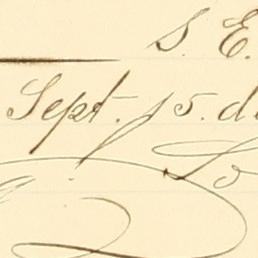 S. E.
Sept. 15. d
Lo